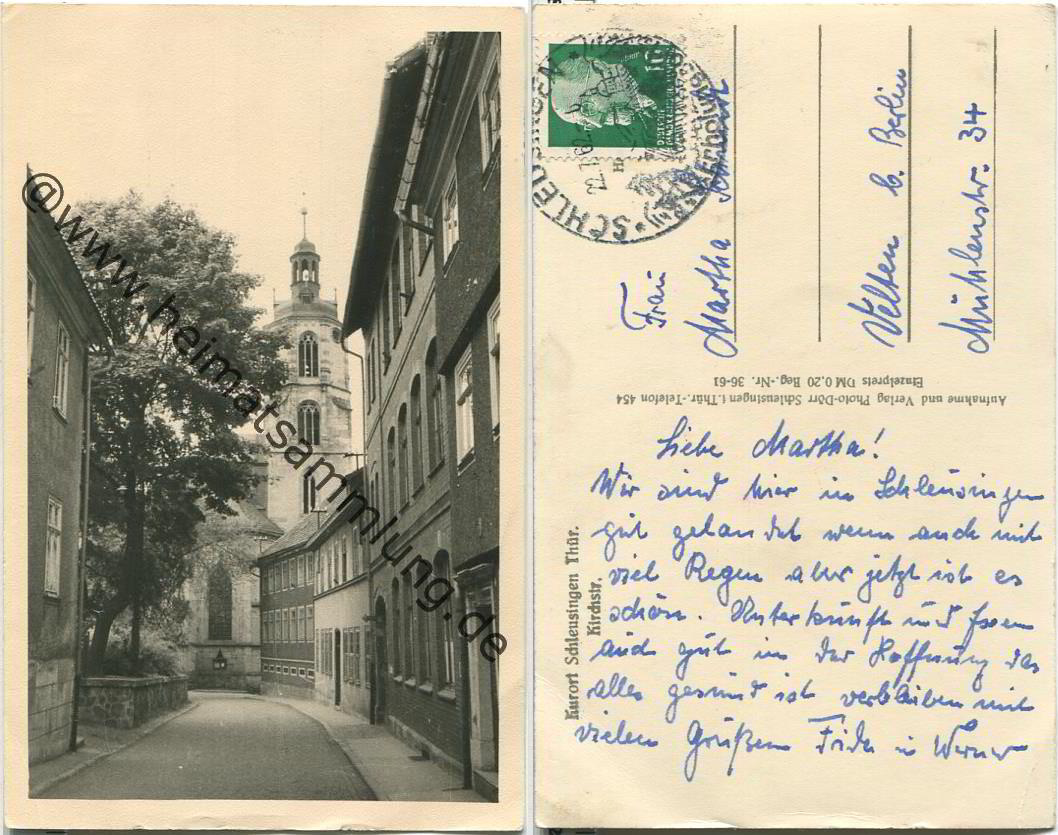 @www.heimatsammlung.de
Frau
Martha
Velten b. Berlin
Mühlenstr. 34
Aufnahme und Verlag Photo-Dörr Schleusingen i. Thür.-Telefon 454
Einzelpreis DM 0,20 Reg.-Nr. 36-61
Kurort Schleusingen Thür.
Kirchstr.
Liebe Martha!
Wir sind hier in Schleusingen
gut gelandet wenn auch mit
viel Regen aber jetzt ist es
schön. Unterkunft und Essen
auch gut in der Hoffnung das
alles gesund ist verbleiben mit
vielen Grüßen Frida u Werner